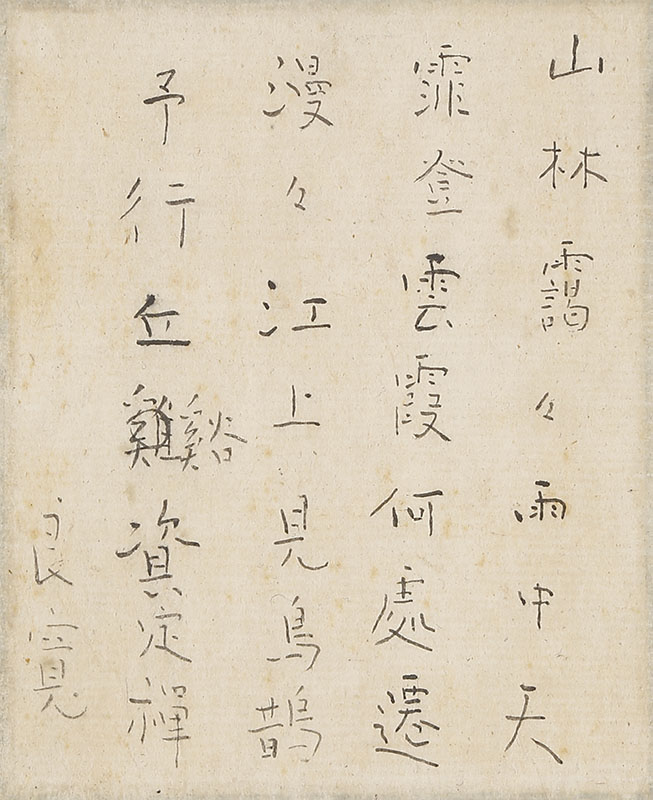 山林靄々雨中天
霏登雲霞何處遷
漫々江上見鳥鵲
予行丘雞谿資定禪
良寛